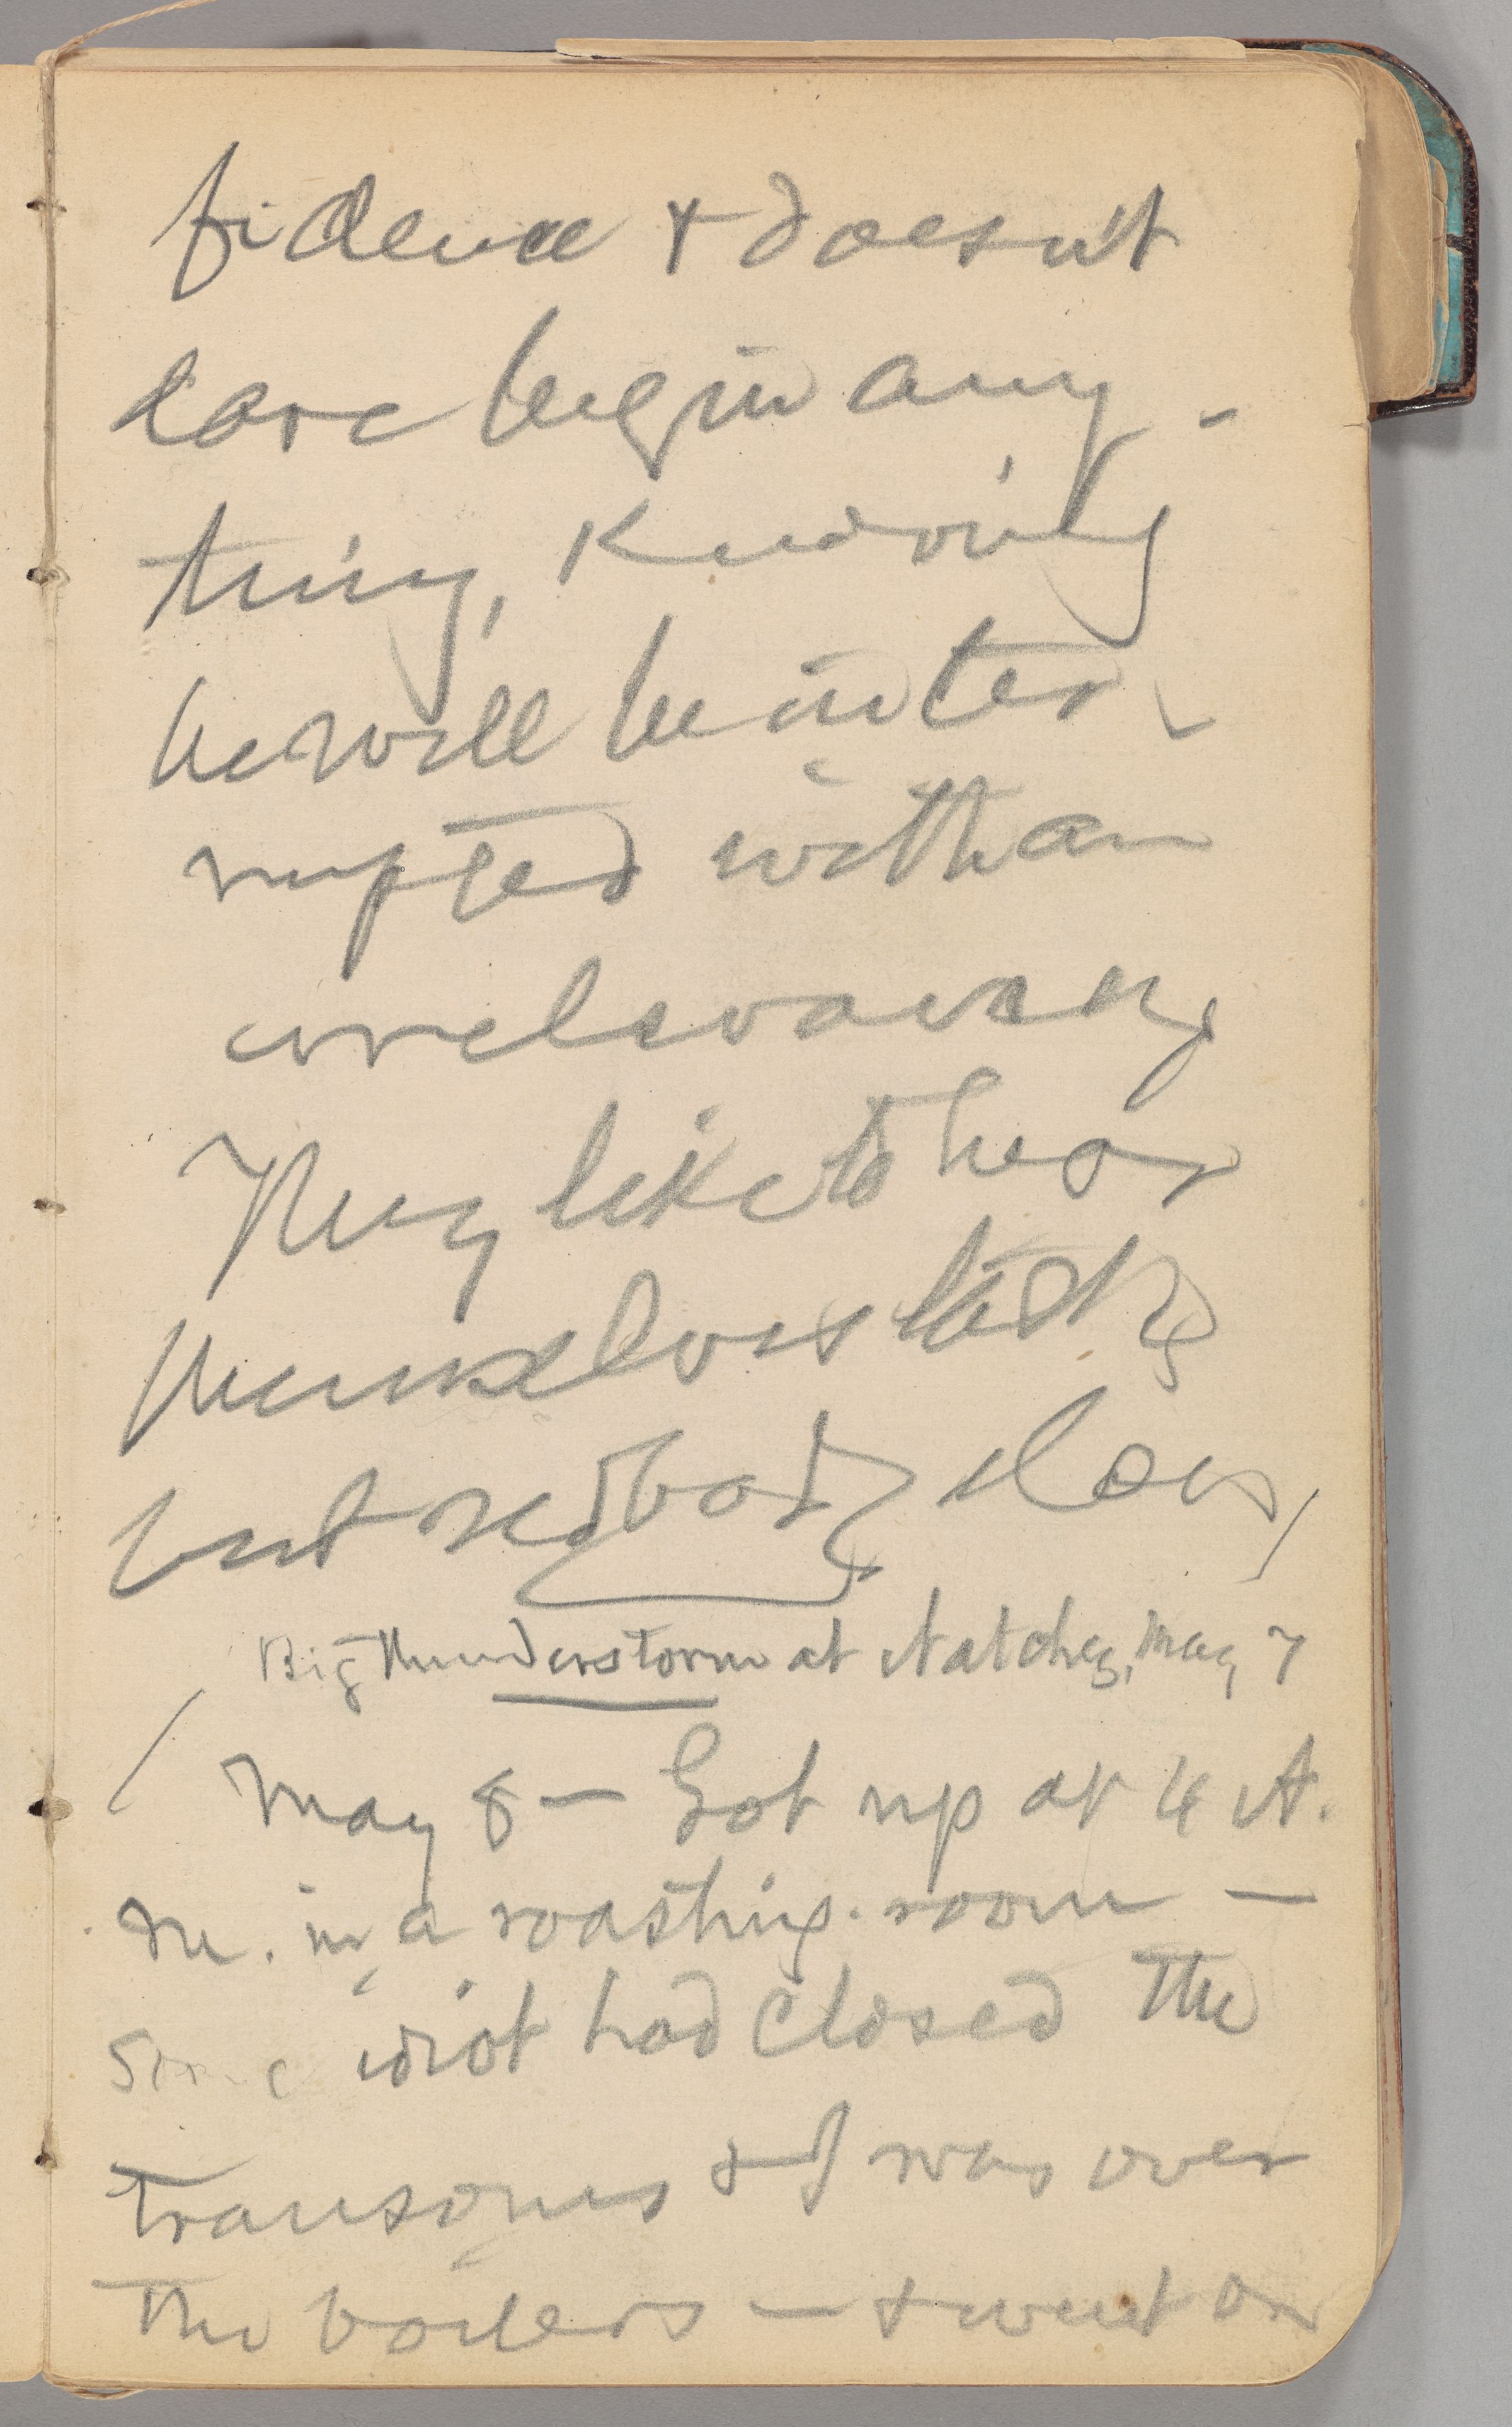 fidence & doesn't
dare begin any-
thing, knowing
he will be inter-
rupted with an
irrelevancy
They like to hear
themselves talk,
but nobody else does,
Big thunderstorm at Natchez, May 7
May 8 — Got up at 4 A.
M. in a roasting room —
some idiot had closed the
transoms & I was over
the boilers — & went on